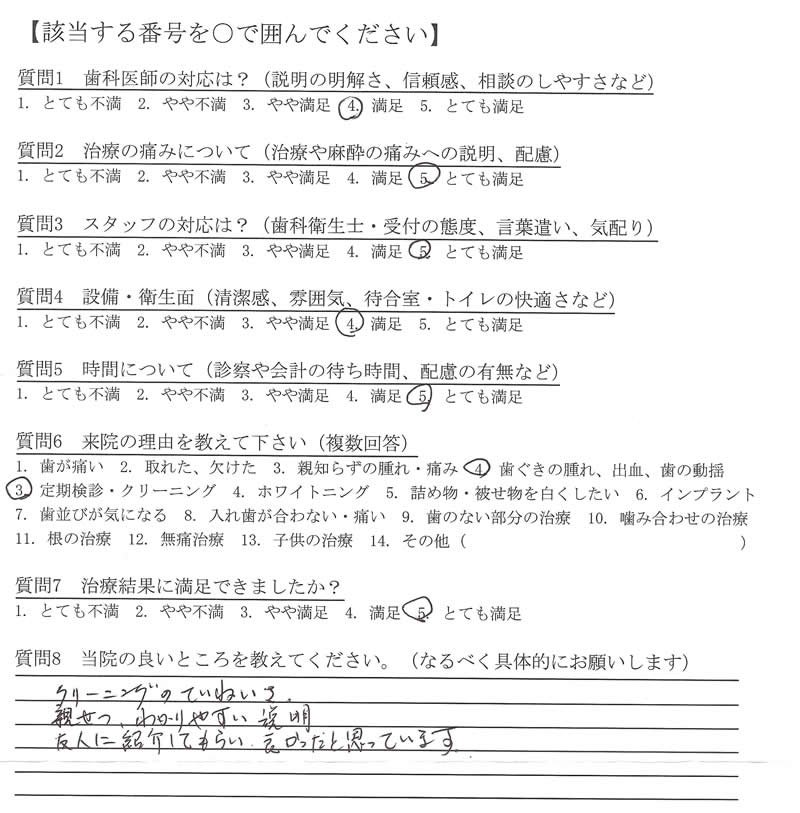 【該当する番号を○で囲んでください】
質問1　歯科医師の対応は？（説明の明解さ、信頼感、相談のしやすさなど）
1. とても不満　2. やや不満　3. やや満足　4. 満足　5. とても満足
質問2　治療の痛みについて（治療や麻酔の痛みへの説明、配慮）
1. とても不満　2. やや不満　3. やや満足　4. 満足　5. とても満足
質問3　スタッフの対応は？（歯科衛生士・受付の態度、言葉遣い、気配り）
1. とても不満　2. やや不満　3. やや満足　4. 満足　5. とても満足
質問4　設備・衛生面（清潔感、雰囲気、待合室・トイレの快適さなど）
1. とても不満　2. やや不満　3. やや満足　4. 満足　5. とても満足
質問5　時間について（診察や会計の待ち時間、配慮の有無など）
1. とても不満　2. やや不満　3. やや満足　4. 満足　5. とても満足
質問6　来院の理由を教えて下さい（複数回答）
1. 歯が痛い　2. 取れた、欠けた　3. 親知らずの腫れ・痛み　4. 歯ぐきの腫れ、出血、歯の動揺
3. 定期検診・クリーニング　4. ホワイトニング　5. 詰め物・被せ物を白くしたい　6. インプラント
7. 歯並びが気になる　8. 入れ歯が合わない・痛い　9. 歯のない部分の治療　10. 噛み合わせの治療
11. 根の治療　12. 無痛治療　13. 子供の治療　14. その他（　　　　　　　　　　）
質問7　治療結果に満足できましたか？
1. とても不満　2. やや不満　3. やや満足　4. 満足　5. とても満足
質問8　当院の良いところを教えてください。（なるべく具体的にお願いします）
クリーニングのていねいさ、
親せつ、わかりやすい説明
友人に紹介してもらい、良かったと思っています。